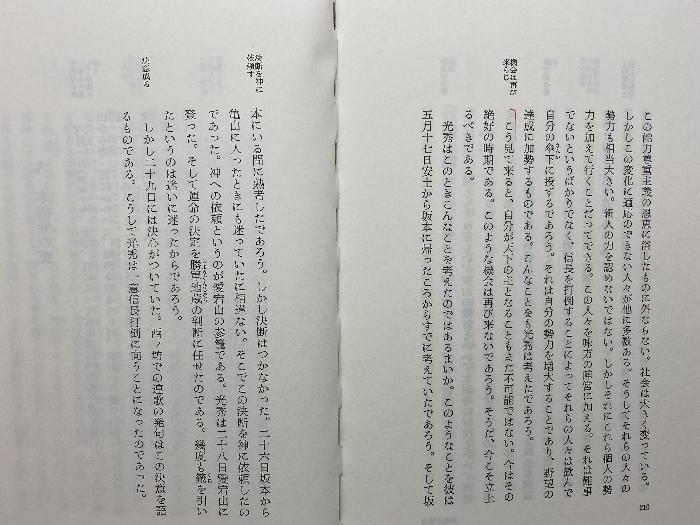 この能力尊重主義の恩恵に浴したものに外ならない。社会は大きく変っている。
しかしこの変化に適応のできない人々が他に多数ある。そうしてそれらの人々の
勢力も相当大きい。新人の力を認めないではない。しかしそれにこれら個人の勢
力を加えて行くことだってできる。この人々を味方の陣営に加える。それは難事
でないというばかりでなく、信長を打倒することによってそれらの人々は歓んで
自分の傘下に投ずるであろう。それは自分の勢力を増大することであり、野望の
達成に加勢するものである。こんなことをも光秀は考えたであろう。
機会は再び
来らじ
こう見て来ると、自分が天下の主となることもまた不可能ではない。今はその
絶好の時期である。このような機会は再び来ないであろう。そうだ、今こそ立上
るべきである。
光秀はこのときこんなことを考えたのではあるまいか。このようなことを彼は
五月十七日安土から坂本に帰ったころからすでに考えていたであろう。そして坂
210
決断を神に
依頼す
本にいる間に熟考したであろう。しかし決断はつかなかった。二十六日坂本から
亀山に入ったときにも迷っていたに相違ない。そこでこの決断を神に依頼したの
であった。神への依頼というのが愛宕山の参籠である。光秀は二十八日愛宕山に
登った。そして運命の決定を勝軍地蔵の判断に任せたのである。幾度も籤を引い
たというのは迷いに迷ったからであろう。
決意成る
しかし二十九日には決心がついていた。西ノ坊での連歌の発句はこの決意を語
るものである。こうして光秀は一意信長打倒に向うことになったのであった。